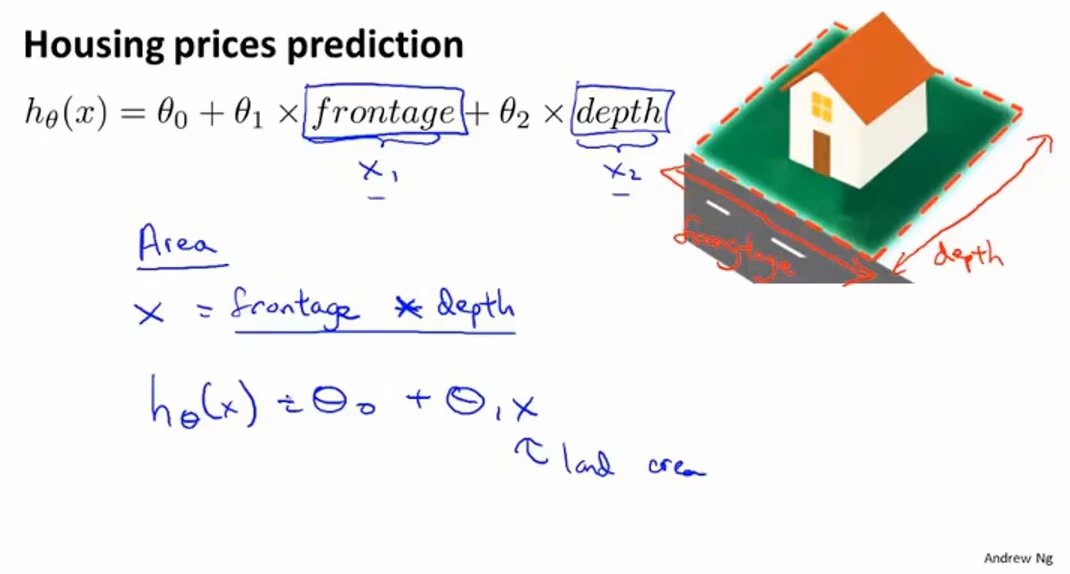 Housing prices prediction
hθ(x) = θ0 + θ1 × frontage + θ2 × depth
x1
x2
frontage
depth
Area
x = frontage * depth
hθ(x) = θ0 + θ1 x
land area
Andrew Ng